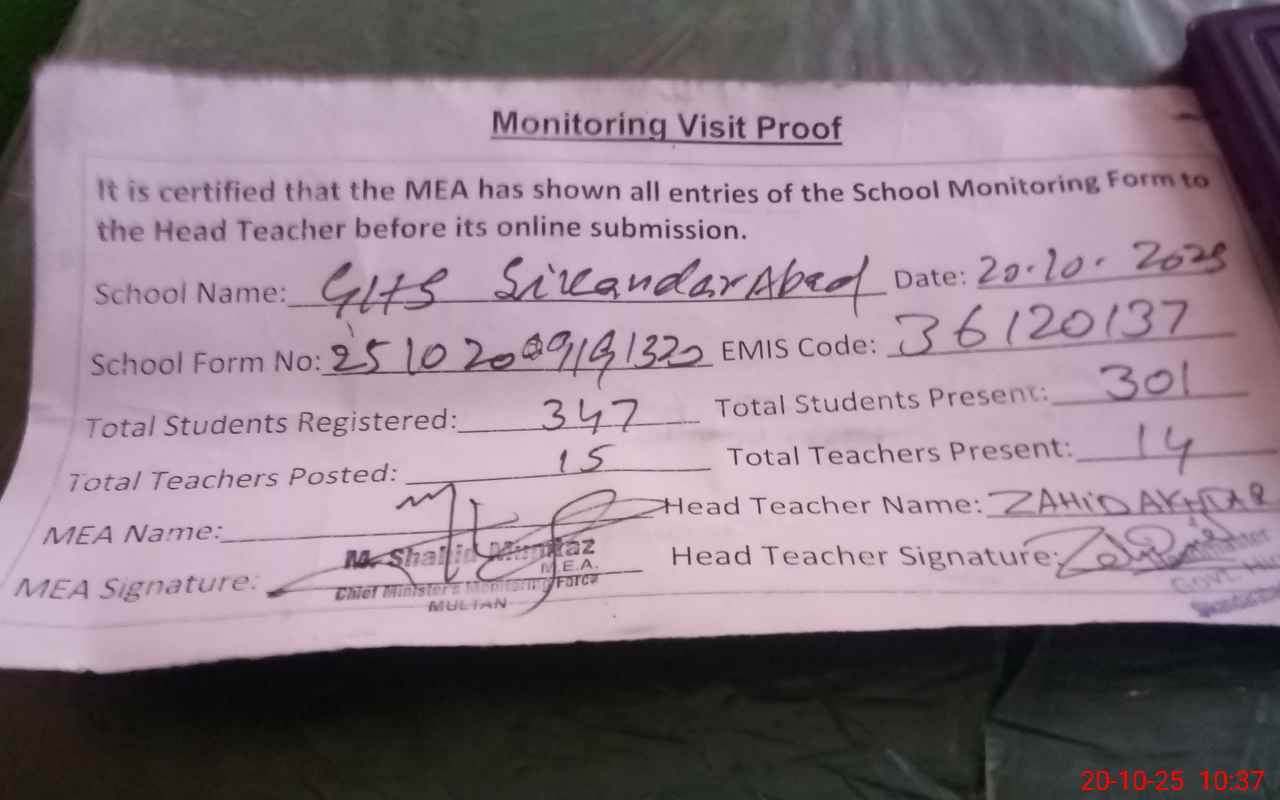 Monitoring Visit Proof
It is certified that the MEA has shown all entries of the School Monitoring Form to
the Head Teacher before its online submission.
School Name: GHS Sikandar Abad Date: 20.10.2025
School Form No: EMIS Code: 36120137
Total Students Registered: 347 Total Students Present: 301
Total Teachers Posted: 15 Total Teachers Present: 14
MEA Name: Head Teacher Name: ZAHID AKHTAR
M. Shahid Mumtaz
M.E.A.
MEA Signature: Head Teacher Signature:
Chief Minister's Monitoring Force
MULTAN
Govt. Hi
20-10-25 10:37